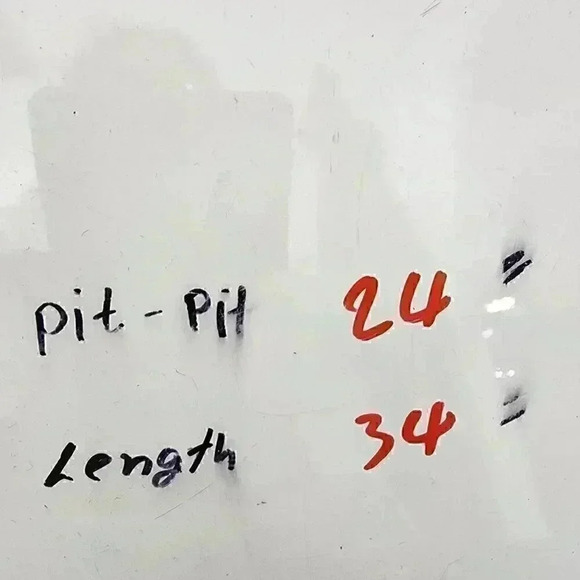 pit - Pit 24"
Length 34"